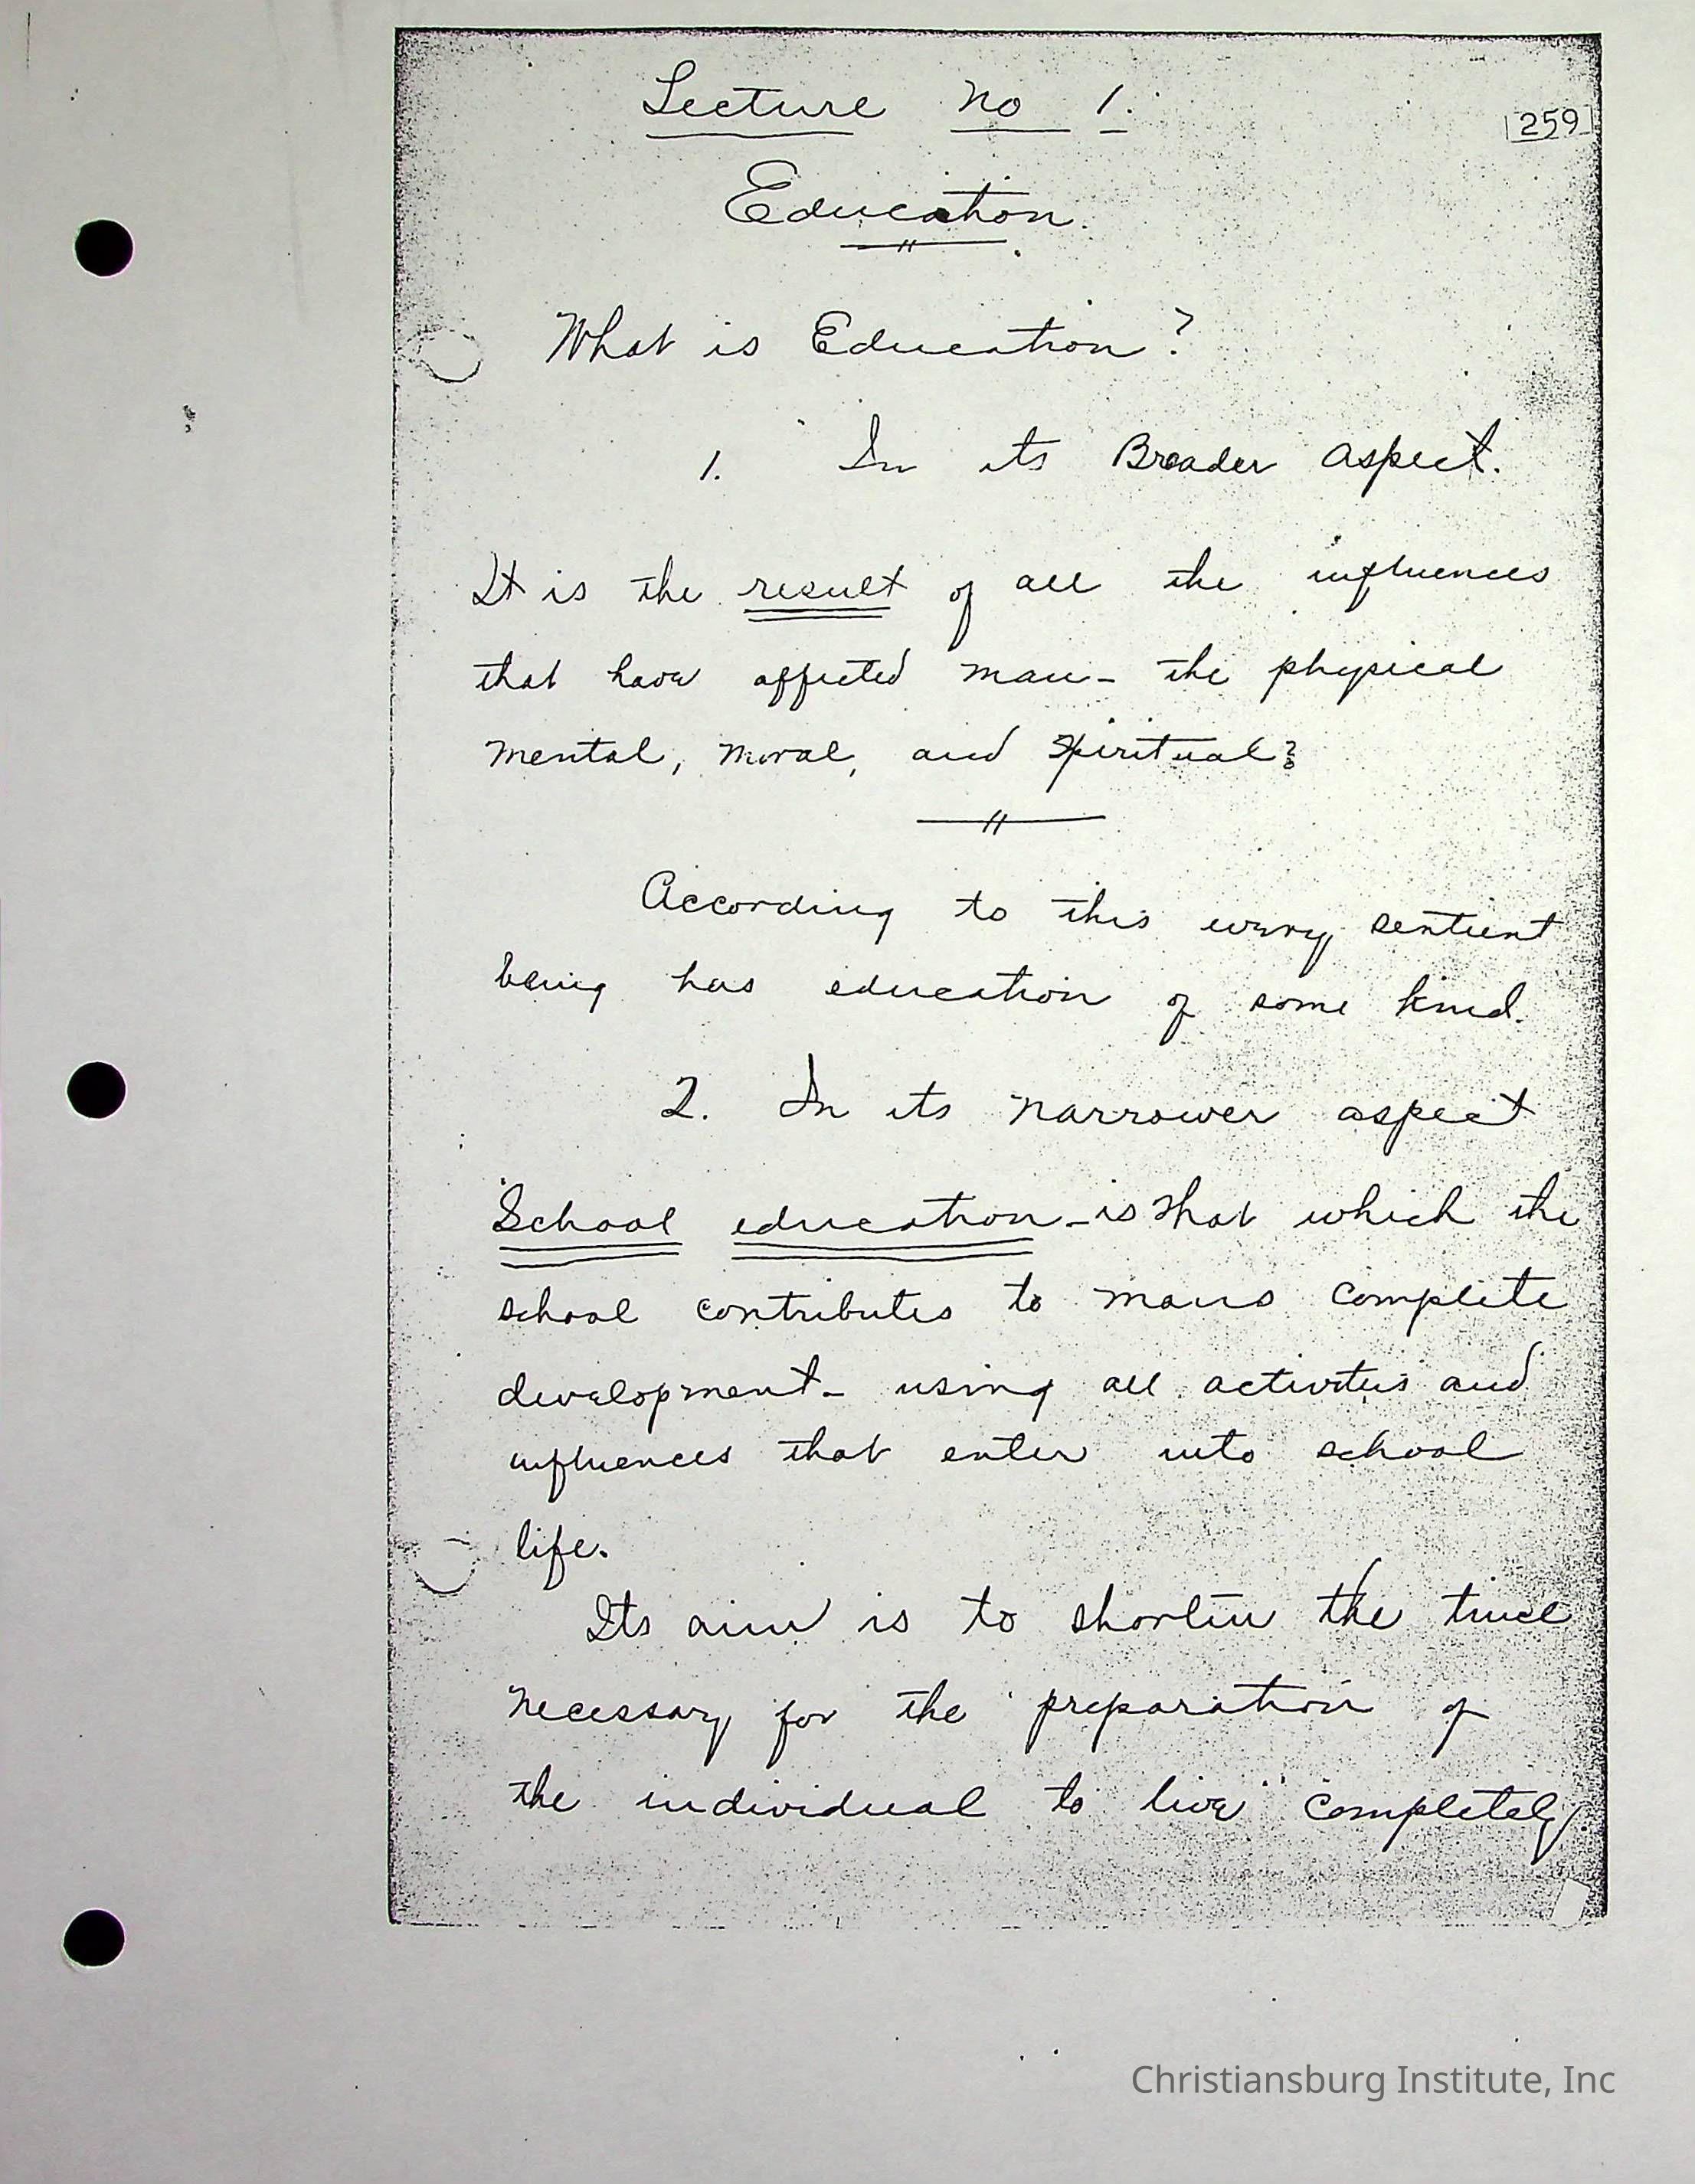 Lecture No 1.
259
Education.
What is Education?
1. In its Broader aspect.
It is the result of all the influences
that have affected man - the physical
mental, moral, and spiritual?
According to this every sentient
being has education of some kind.
2. In its narrower aspect
School education - is that which the
school contributes to mans complete
development - using all activities and
influences that enter into school
life.
Its aim is to shorten the time
necessary for the preparation of
the individual to live "completely".
Christiansburg Institute, Inc